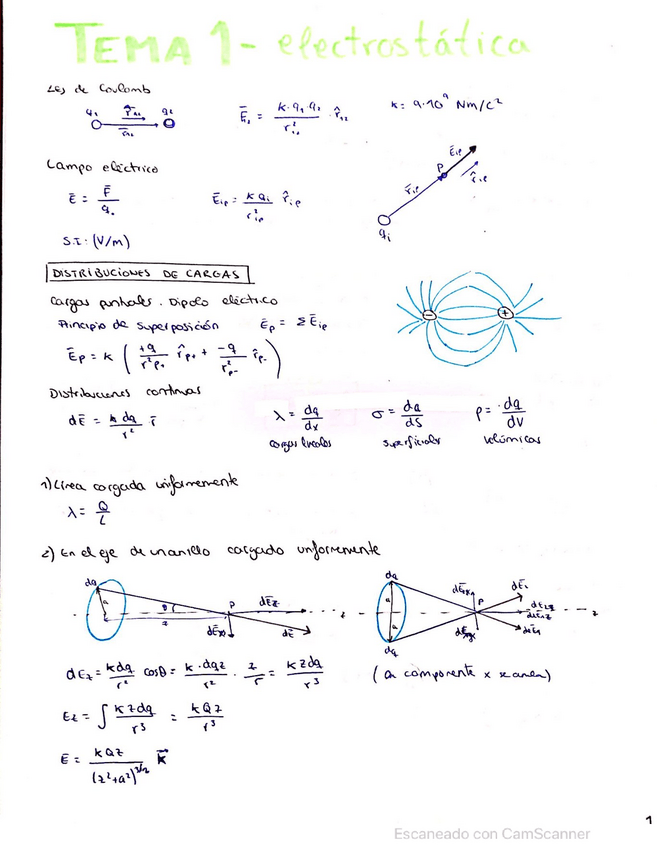 TEMA 1 - electrostática
Ley de Coulomb
q₁ r̂₁₂ q₂
r̄₁₂
F̄₁₂ = k·q₁·q₂ / r²₁₂ · r̂₁₂
k = 9·10⁹ Nm/C²
Campo eléctrico
Ē = F̄ / q₀
Ēᵢₚ = k qᵢ / r²ᵢₚ r̂ᵢₚ
S.I: (V/m)
Ēᵢₚ
P
r̂ᵢₚ
r̄ᵢₚ
qᵢ
DISTRIBUCIONES DE CARGAS
Cargas puntuales. Dipolo eléctrico
Principio de superposición Ēₚ = Σ Ēᵢₚ
Ēₚ = k ( +q / r²ₚ₊ r̂ₚ₊ + -q / r²ₚ₋ r̂ₚ₋ )
- +
Distribuciones continuas
dĒ = k dq / r² r̄
λ = dq / dx
σ = dq / dS
ρ = dq / dV
cargas lineales superficiales volúmicas
1) Línea cargada uniformemente
λ = Q / L
2) En el eje de un anillo cargado uniformemente
dq
a
θ
P
dEz
z
z
dĒ
dq
a
a
dq
P
dĒ₁
z
dEz = kdq / r² cosθ = k·dqz / r² · z / r = kzdq / r³
(la componente x se anula)
Ez = ∫ kzdq / r³ = kQz / r³
Ē = kQz / (z²+a²)^3/2 k̄
1
Escaneado con CamScanner